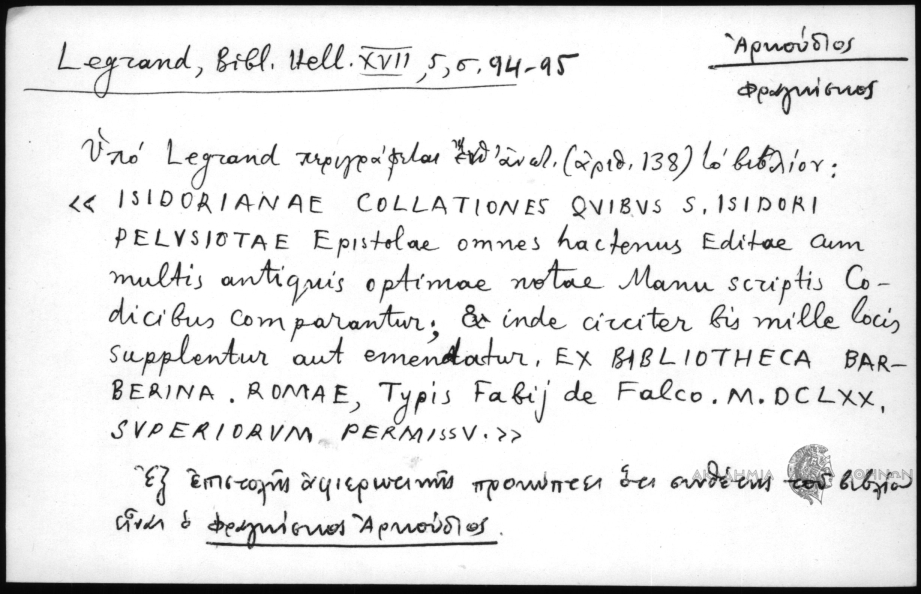 Legrand, Bibl. Hell. XVII, 5, σ. 94-95
Ἀρκούδιος
Φραγκίσκος
Ὑπό Legrand περιγράφεται ἐνθ' ἀνωτ. (ἀριθ. 138) τό βιβλίον:
« ISIDORIANAE COLLATIONES QVIBVS S. ISIDORI
PELVSIOTAE Epistolae omnes hactenus Editae cum
multis antiquis optimae notae Manu scriptis Co-
dicibus comparantur; & inde circiter bis mille locis
supplentur aut emendatur. EX BIBLIOTHECA BAR-
BERINA. ROMAE, Typis Fabij de Falco. M.DCLXX.
SVPERIORVM PERMISSV.»
Ἐξ ἐπιστολῆς ἀφιερωτικῆς προκύπτει ὅτι συνθέτης τοῦ βιβλίου
εἶναι ὁ Φραγκίσκος Ἀρκούδιος.
ΑΚΑΔΗΜΙΑ ΑΘΗΝΩΝ